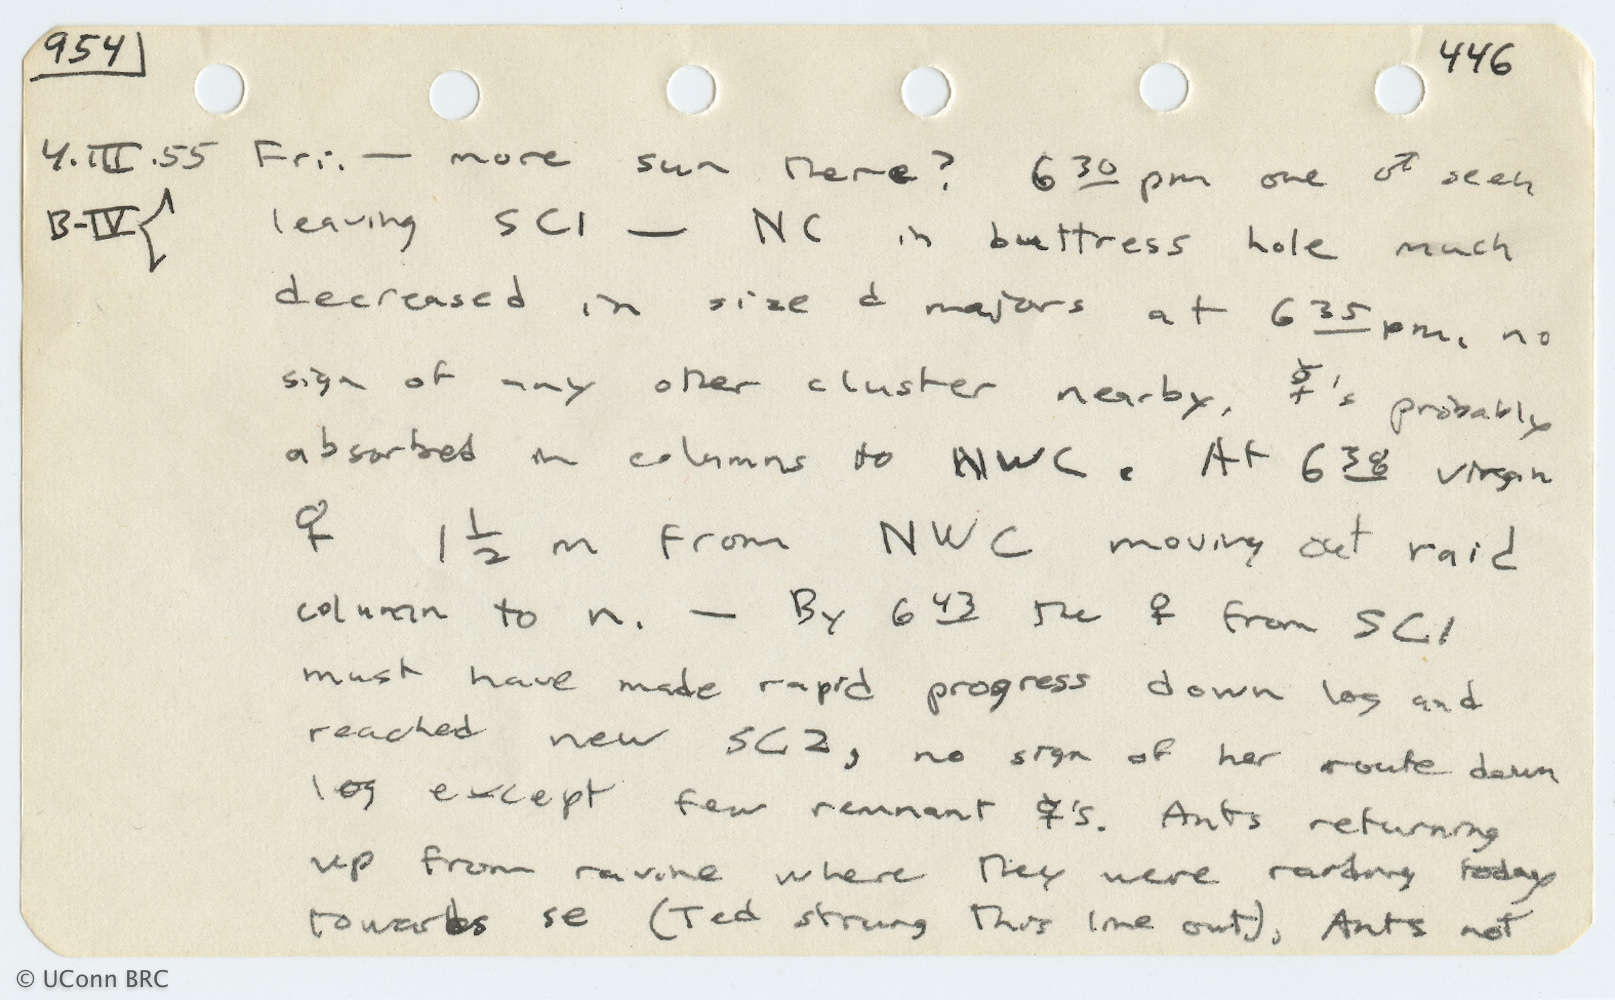 954 446
4.III.55 Fri. — more sun there? 6 30 pm one ♂ seen
B-IV { leaving SC1 — NC in buttress hole much
decreased in size & majors at 6 35 pm, no
sign of any other cluster nearby, ☿'s probably
absorbed in columns to NWC. At 6 38 virgin
♀ 1 1/2 m from NWC moving out raid
column to n. — By 6 43 the ♀ from SC1
must have made rapid progress down log and
reached new SC2, no sign of her route down
log except few remnant ☿'s. Ants returning
up from ravine where they were raiding today
towards se (Ted strung this line out), Ants not
© UConn BRC